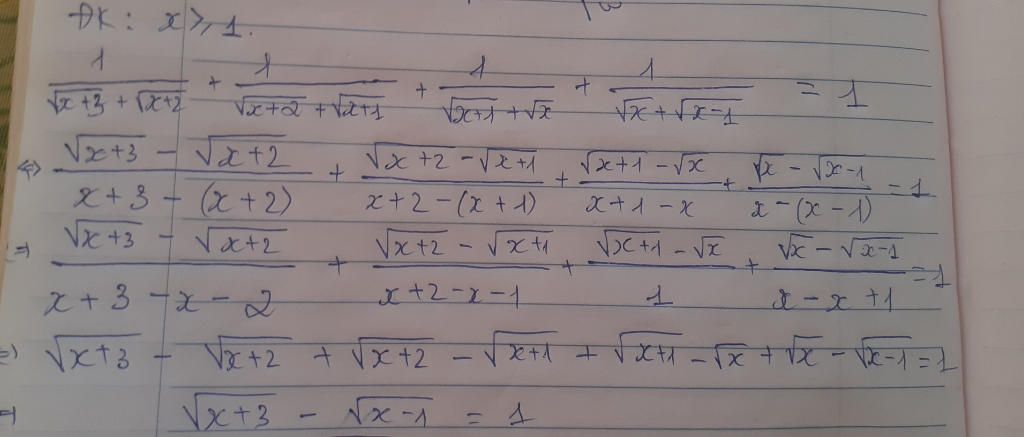 ĐK : x ⩾ 1.
1/(√(x+3) + √(x+2)) + 1/(√(x+2) + √(x+1)) + 1/(√(x+1) + √x) + 1/(√x + √(x-1)) = 1
⇔ (√(x+3) - √(x+2))/(x+3 - (x+2)) + (√(x+2) - √(x+1))/(x+2 - (x+1)) + (√(x+1) - √x)/(x+1 - x) + (√x - √(x-1))/(x - (x-1)) = 1
⇒ (√(x+3) - √(x+2))/(x+3 - x - 2) + (√(x+2) - √(x+1))/(x+2 - x - 1) + (√(x+1) - √x)/1 + (√x - √(x-1))/(x - x + 1) = 1
⇒ √(x+3) - √(x+2) + √(x+2) - √(x+1) + √(x+1) - √x + √x - √(x-1) = 1
⇒ √(x+3) - √(x-1) = 1